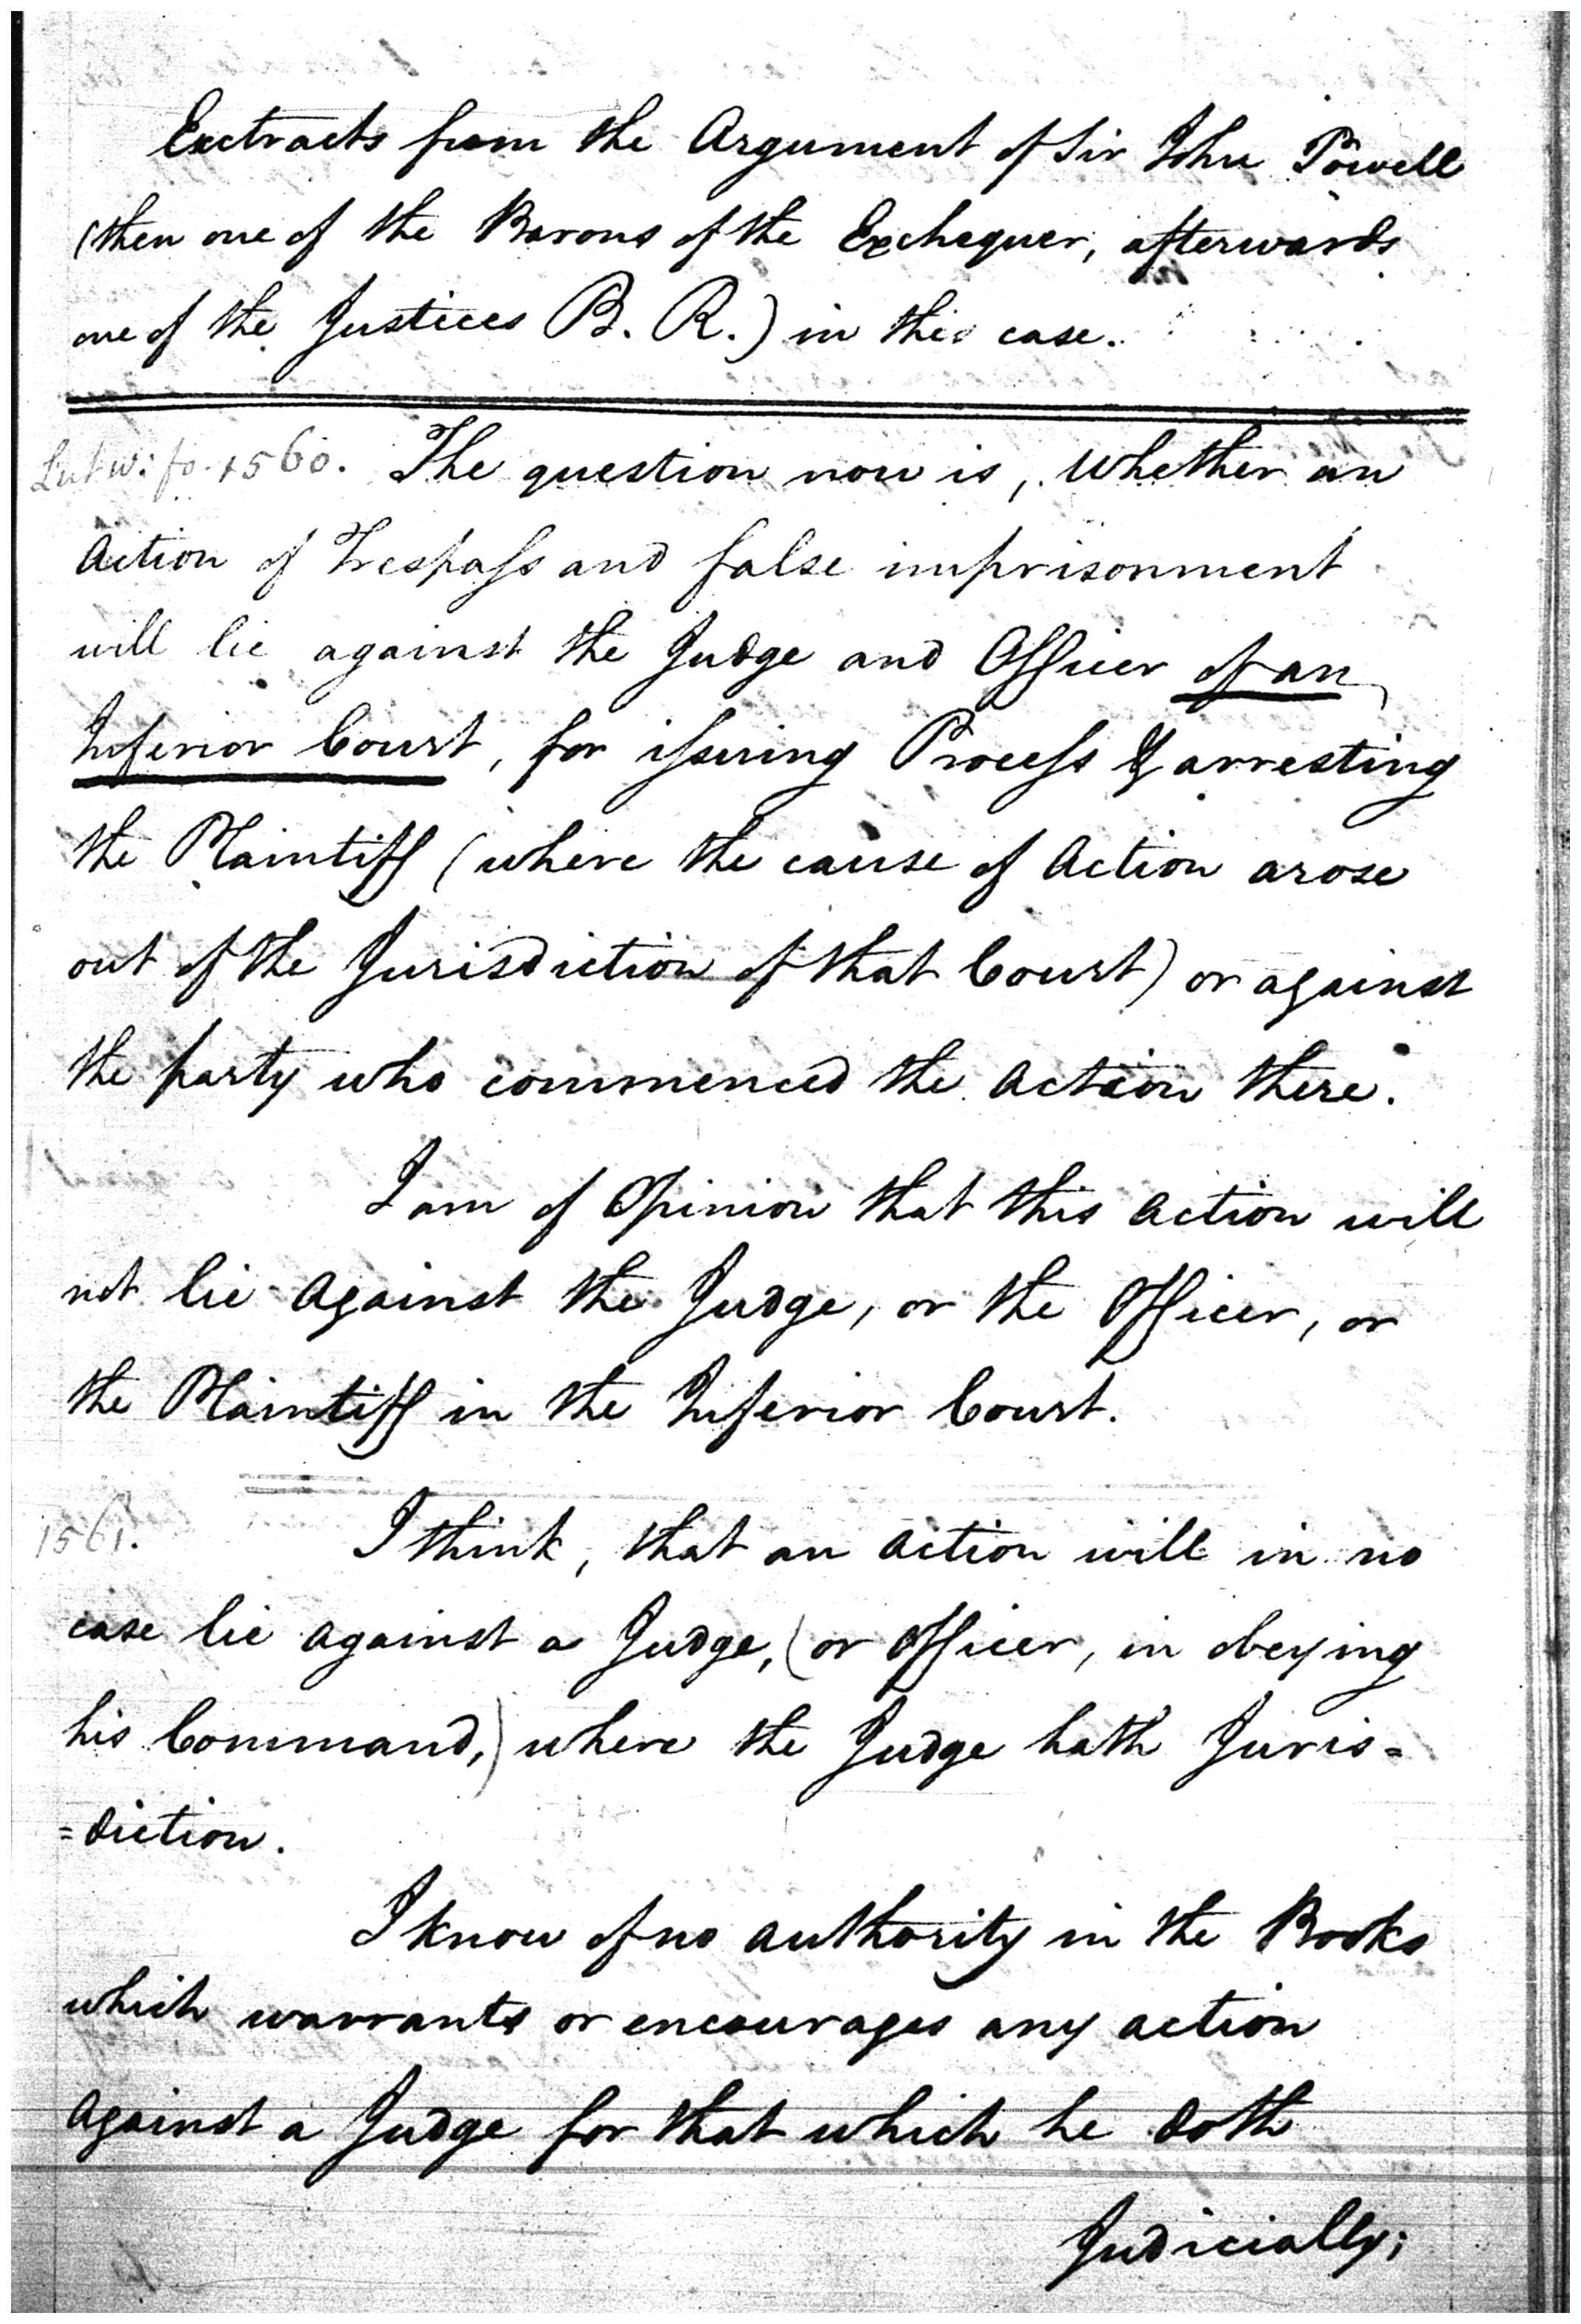 Extracts from the Argument of Sir John Powell
(then one of the Barons of the Exchequer, afterwards
one of the Justices B. R.) in this case.
Lutw: fo. 1560. The question now is, Whether an
Action of Trespass and false imprisonment
will lie against the Judge and Officer of an
Inferior Court, for issuing Process & arresting
the Plaintiff (where the cause of Action arose
out of the Jurisdiction of that Court) or against
the party who commenced the Action there.
I am of Opinion that this Action will
not lie Against the Judge, or the Officer, or
the Plaintiff in the Inferior Court.
1561. I think, that an Action will in no
case lie against a Judge, (or Officer, in obeying
his Command,) where the Judge hath Juris=
=diction.
I know of no Authority in the Books
which warrants or encourages any action
Against a Judge for that which he doth
Judicially;